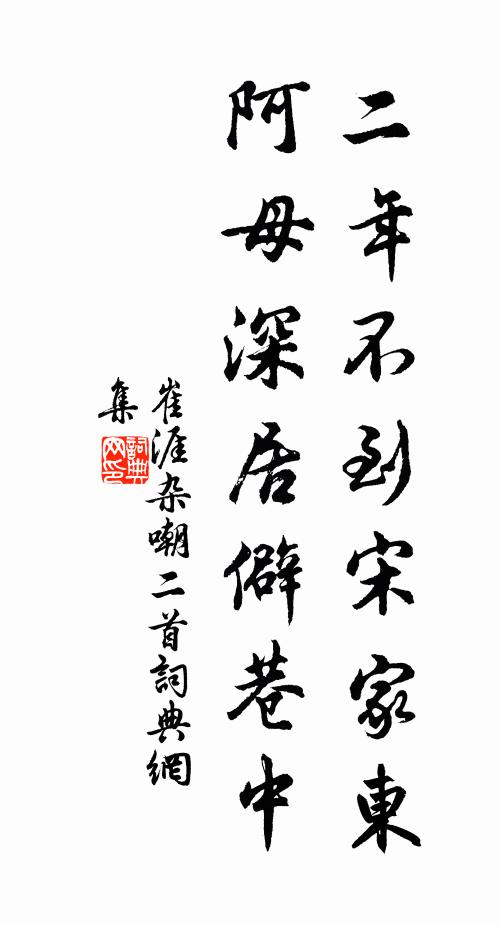 二年不到宋家東
阿母深居僻巷中
崔涯杂嘲二首詞典網
集
詞典网印